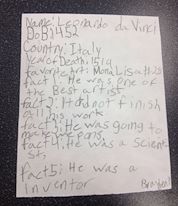 Name: Leonardo da Vinci
DoB: 1452
Country: Italy
Year of Death: 1519
favorite Art: Mona Lisa
fact 1: He was one of
the Best artist
fact 2: It did not finish
all his work
fact 3: He was going to
fact 4: He was a Scien
tist
Fact 5: He was a
inventor